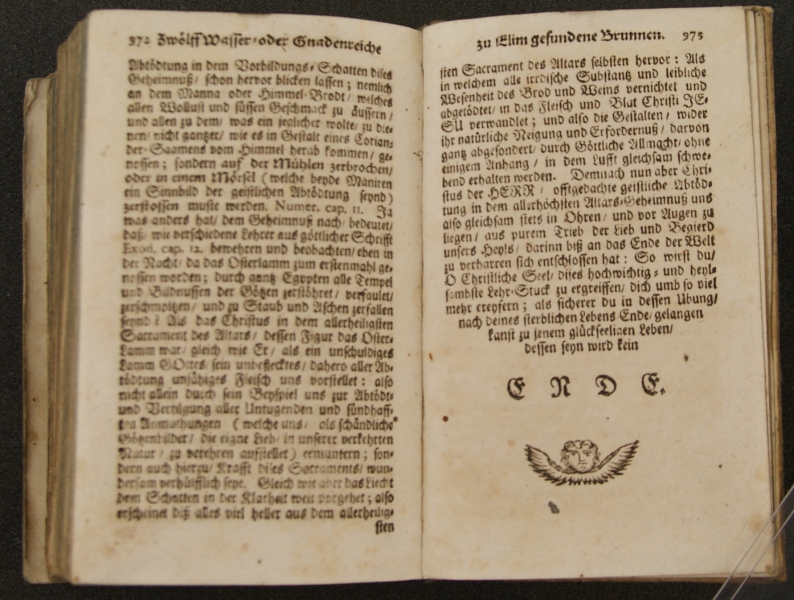 972 Zwölff Wasser- oder Gnadenreiche
Abtödtung in dem Vorbildungs-Schatten dises
Geheimnuß/ schon hervor blicken lassen; nemlich
an dem Manna oder Himmel-Brodt/ welches
allen Wollust und süssen Geschmack zu äussern/
und allen zu dem/ was ein jeglicher wolte/ zu die-
nen/ nicht gantzer/ wie es in Gestalt eines Corian-
der-Saamens vom Himmel herab kommen/ ge-
nossen; sondern auf der Mühlen zerbrochen/
oder in einem Mörsel (welche beyde Maniren
ein Sinnbild der geistlichen Abtödtung seynd)
zerstossen muste werden. Numer. cap. 11. Ja
was anders hat/ dem Geheimnuß nach/ bedeutet/
daß/ wie verschiedene Lehrer aus göttlicher Schrifft
Exod. cap. 12. bewehren und beobachten/ eben in
der Nacht/ da das Osterlamm zum erstenmahl ge-
nossen worden; durch gantz Egypten alle Tempel
und Bildnussen der Götzen zerstöhret/ verfaulet/
zerschmoltzen/ und zu Staub und Aschen zerfallen
seynd? Als das Christus in dem allerheiligsten
Sacrament des Altars/ dessen Figur das Oster-
Lamm war/ gleich wie Er/ als ein unschuldiges
Lamm GOttes/ sein unbeflecktes/ dahero aller Ab-
tödtung unfähiges Fleisch uns vorstellet: also
nicht allein durch sein Beyspiel uns zur Abtödt-
und Vertilgung aller Untugenden und sündhaff-
ten Anmuthungen (welche uns/ als schändliche
Götzenbilder/ die eigne Lieb/ in unserer verkehrten
Natur/ zu verehren aufstellet) ermuntern; son-
dern auch hierzu/ Krafft dises Sacraments/ wun-
dersam verhülfflich seye. Gleich wie aber das Liecht
dem Schatten in der Klarheit weit vorgehet; also
erscheinet diß alles viel heller aus dem allerheilig-
sten
zu Elim gefundene Brunnen. 973
sten Sacrament des Altars selbsten hervor: Als
in welchem alle irrdische Substantz und leibliche
Wesenheit des Brod und Weins vernichtet und
abgetödtet/ in das Fleisch und Blut Christi JE-
SU verwandlet; und also die Gestalten/ wider
ihr natürliche Neigung und Erfordernuß/ darvon
gantz abgesondert/ durch Göttliche Allmacht/ ohne
einigem Anhang/ in dem Lufft gleichsam schwe-
bend erhalten werden. Demnach nun aber Chri-
stus der HERR/ offtgedachte geistliche Abtöd-
tung in dem allerhöchsten Altars-Geheimnuß uns
also gleichsam stets in Ohren/ und vor Augen zu
liegen/ aus purem Trieb der Lieb und Begierd
unsers Heyls/ darinn biß an das Ende der Welt
zu verharren sich entschlossen hat: So wirst du/
O Christliche Seel/ dises hochwichtig- und heyl-
sambste Lehr-Stuck zu ergreiffen/ dich umb so viel
mehr ereyfern; als sicherer du in dessen Ubung/
nach deines sterblichen Lebens Ende/ gelangen
kanst zu jenem glückseeligen Leben/
dessen seyn wird kein
E N D E.